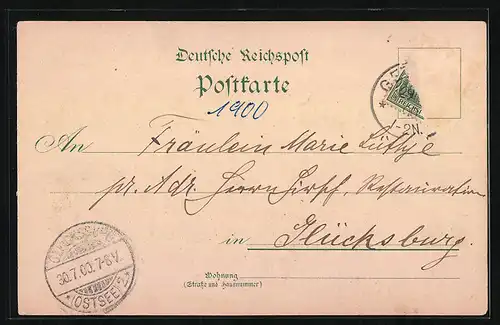 Deutsche Reichspost
Postkarte
1900
1-2N.
An Fräulein Marie Lüthje
pr. Adr. Herrn Hirss, Restauration
in Glücksburg.
30.7.00.7-8V.
* (OSTSEE) *
Wohnung
(Straße und Hausnummer)